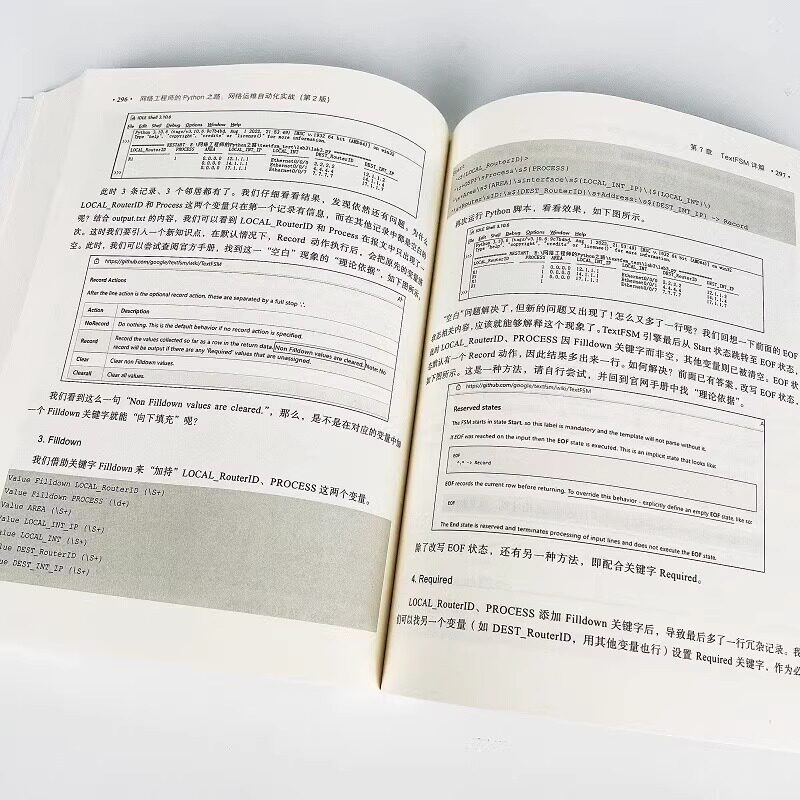 ·296· 网络工程师的 Python 之路:网络运维自动化实战(第 2 版)
IDLE Shell 3.10.6
File Edit Shell Debug Options Window Help
Type "help", "copyright", "credits" or "license()" for more information.
LOCAL_RouterID PROCESS AREA LOCAL_INT_IP LOCAL_INT DEST_RouterID DEST_INT_IP
此时 3 条记录、3 个邻居都有了。我们仔细看看结果,发现依然还有问题,为什么
LOCAL_RouterID 和 Process 这两个变量只在第一个记录有信息,而在其他记录中都是空白的
呢?结合 output.txt 的内容,我们可以看到 LOCAL_RouterID 和 Process 在报文中只出现了一
次。这时我们要引入一个新知识点,在默认情况下,Record 动作执行后,会把原先的变量清
空。此时,我们可以尝试查阅官方手册,找到这一 “空白” 现象的 “理论依据”,如下图所示。
https://github.com/google/textfsm/wiki/TextFSM
Record Actions
After the line action is the optional record action, these are separated by a full stop '.'.
Action Description
NoRecord Do nothing. This is the default behavior if no record action is specified.
Record Record the values collected so far as a row in the return data. Non Filldown values are cleared. Note: No
record will be output if there are any 'Required' values that are unassigned.
Clear Clear non Filldown values.
Clearall Clear all values.
我们看到这么一句 “Non Filldown values are cleared.”,那么,是不是在对应的变量中加
一个 Filldown 关键字就能 “向下填充” 呢?
3. Filldown
我们借助关键字 Filldown 来 “加持” LOCAL_RouterID、PROCESS 这两个变量。
Value Filldown LOCAL_RouterID (\S+)
Value Filldown PROCESS (\d+)
Value AREA (\S+)
Value LOCAL_INT_IP (\S+)
Value LOCAL_INT (\S+)
Value DEST_RouterID (\S+)
ue DEST_INT_IP (\S+)
第 7 章 TextFSM 详解 ·297·
Start
再次运行 Python 脚本,看看效果,如下图所示。
IDLE Shell 3.10.6
File Edit Shell Debug Options Window Help
LOCAL_RouterID PROCESS AREA LOCAL_INT_IP LOCAL_INT DEST_RouterID DEST_INT_IP
“空白” 问题解决了,但新的问题又出现了!怎么又多了一行呢?我们回想一下前面的 EOF
状态相关内容,应该就能够解释这个现象了。TextFSM 引擎最后从 Start 状态跳转至 EOF 状态,
LOCAL_RouterID、PROCESS 因 Filldown 关键字而非空,其他变量则已被清空。EOF 状
态默认有一个 Record 动作,因此结果多出来一行。如何解决?前面已有答案,改写 EOF 状态,
如下图所示。这是一种方法,请自行尝试,并回到官网手册中找 “理论依据”。
https://github.com/google/textfsm/wiki/TextFSM
Reserved states
The FSM starts in state Start, so this label is mandatory and the template will not parse without it.
If EOF was reached on the input then the EOF state is executed. This is an implicit state that looks like:
EOF
^.* -> Record
EOF records the current row before returning. To override this behavior - explicitly define an empty EOF state, like so:
EOF
The End state is reserved and terminates processing of input lines and does not execute the EOF state.
除了改写 EOF 状态,还有另一种方法,即配合关键字 Required。
4. Required
LOCAL_RouterID、PROCESS 添加 Filldown 关键字后,导致最后多了一行冗杂记录。我
们可以找另一个变量(如 DEST_RouterID,用其他变量也行)设置 Required 关键字,作为必